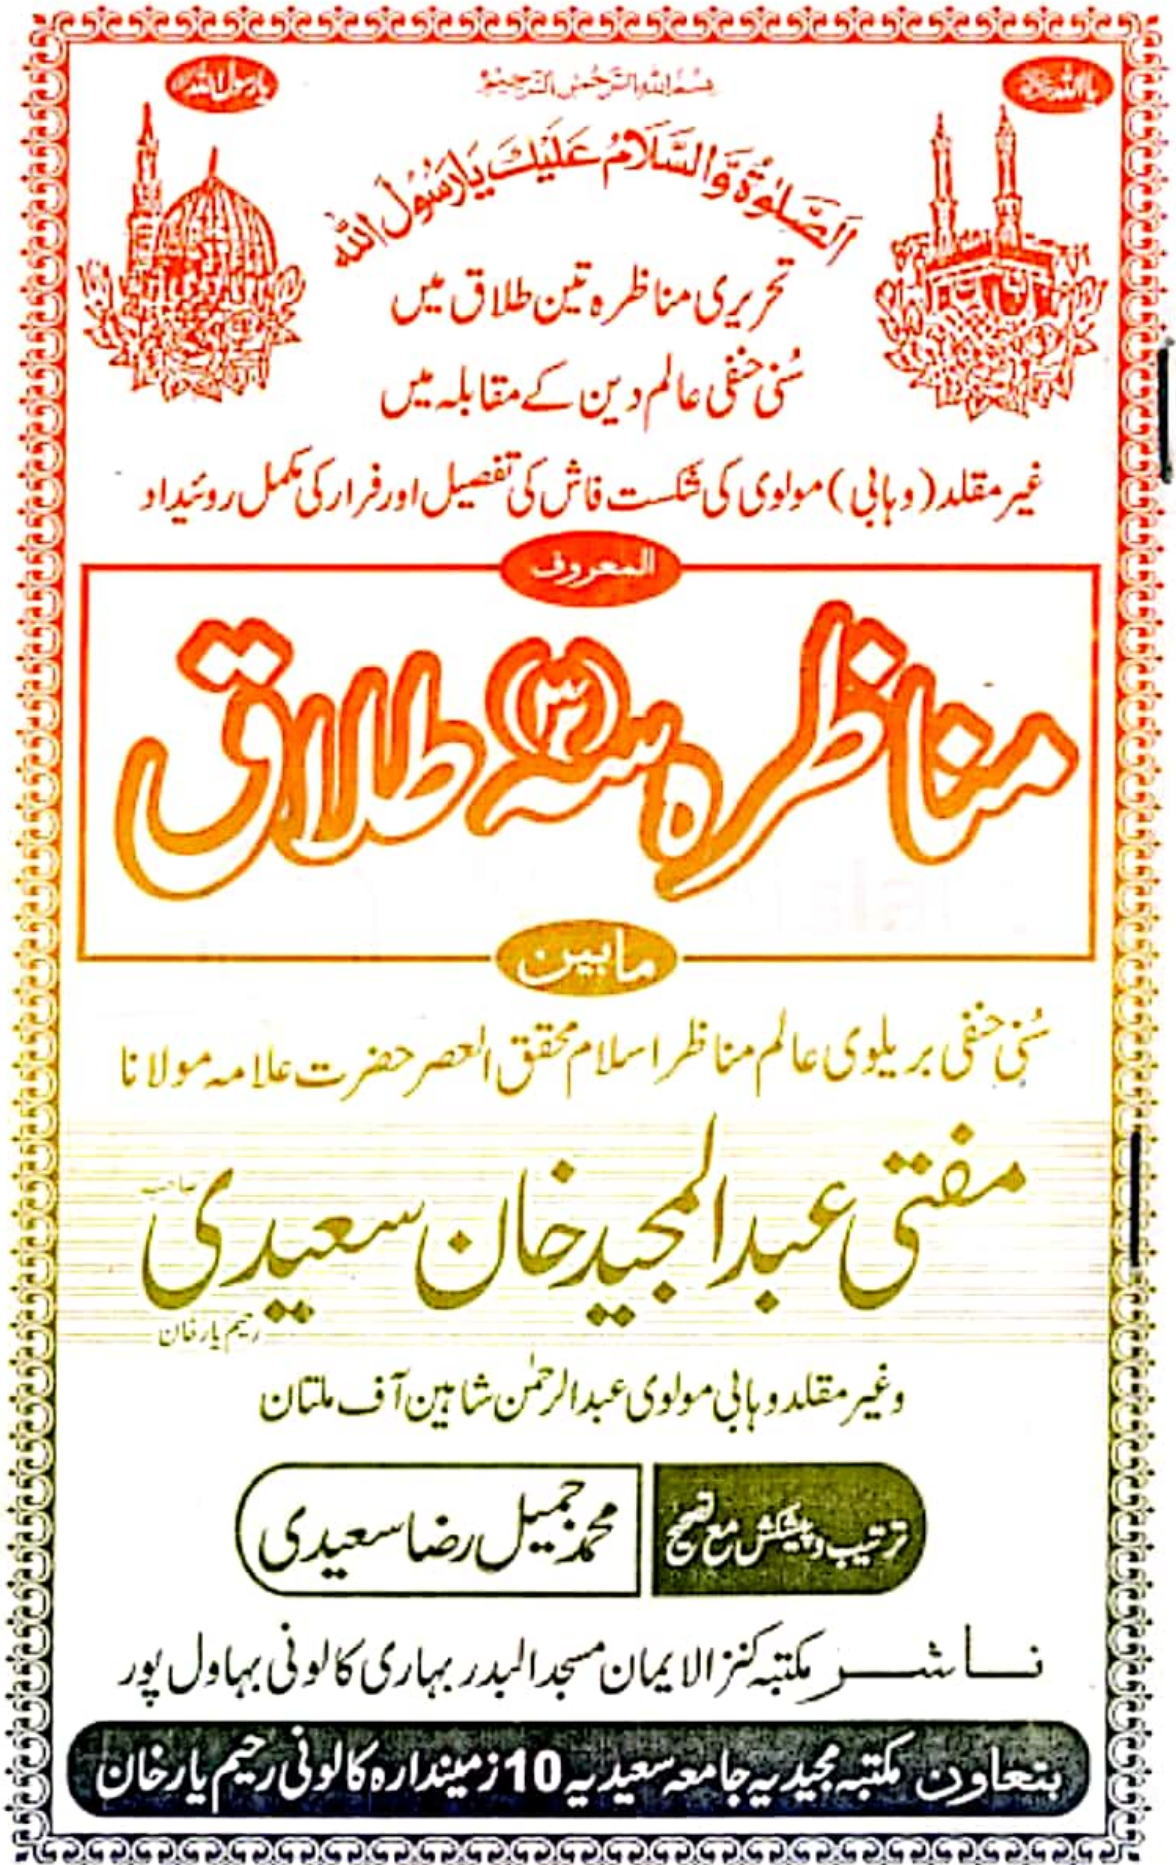 یا اللہ
بسم اللہ الرحمن الرحیم
یا رسول اللہ
الصَّلٰوةُ وَالسَّلَامُ عَلَيْكَ يَا رَسُوْلَ اللہ
تحریری مناظرہ تین طلاق میں
سُنی حنفی عالم دین کے مقابلہ میں
غیر مقلد (وہابی) مولوی کی شکست فاش کی تفصیل اور فرار کی مکمل روئیداد
المعروف
مناظرہ سہ (۳) طلاق
مابین
سُنی حنفی بریلوی عالم مناظر اسلام محقق العصر حضرت علامہ مولانا
مفتی عبدالمجید خان سعیدی صاحب
رحیم یار خان
و غیر مقلد وہابی مولوی عبدالرحمٰن شاہین آف ملتان
ترتیب و پیشکش مع تصحیح
محمد جمیل رضا سعیدی
ناشر مکتبہ کنز الایمان مسجد البدر بہاری کالونی بہاول پور
بتعاون مکتبہ مجیدیہ جامعہ سعیدیہ 10 زمیندارہ کالونی رحیم یار خان